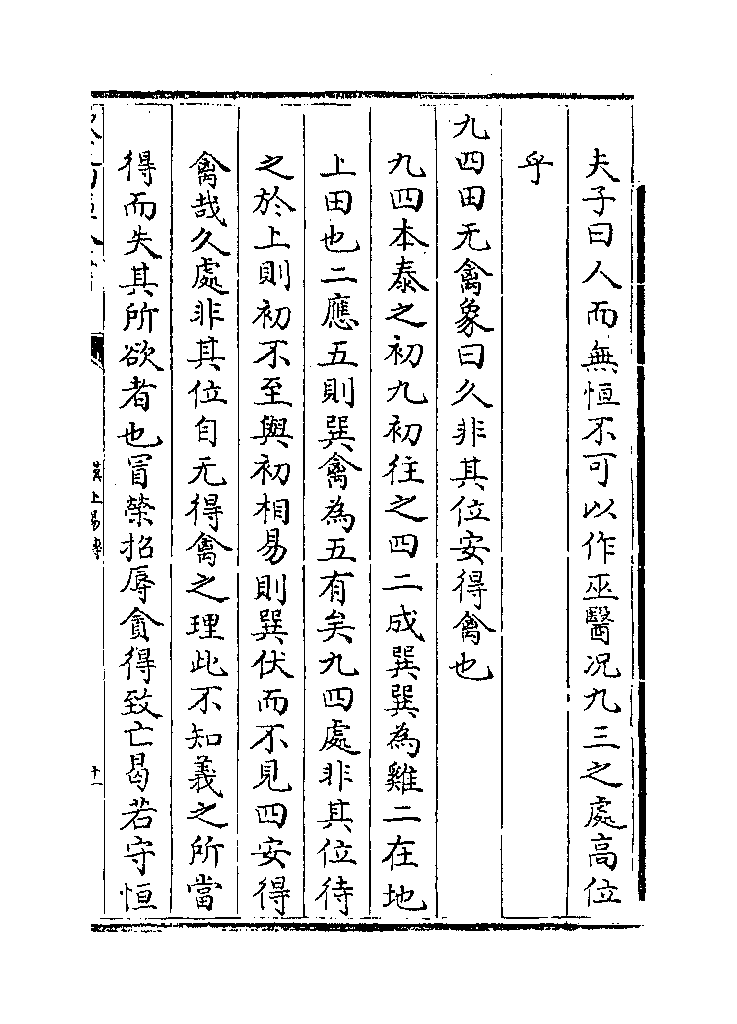 夫子曰人而無恒不可以作巫醫况九三之處高位
乎
九四田无禽象曰久非其位安得禽也
九四本泰之初九初往之四二成巽巽為雞二在地
上田也二應五則巽禽為五有矣九四處非其位待
之於上則初不至與初相易則巽伏而不見四安得
禽哉久處非其位自无得禽之理此不知義之所當
得而失其所欲者也冒榮招辱貪得致亡曷若守恒
漢上易傳
十一